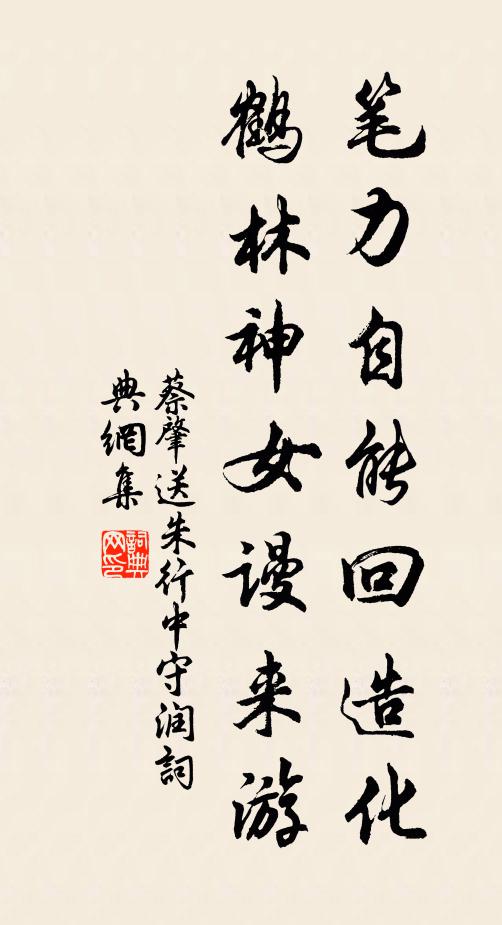 笔力自能回造化
鹤林神女谩来游
蔡肇送朱行中守润詞
典網集
詞典网印